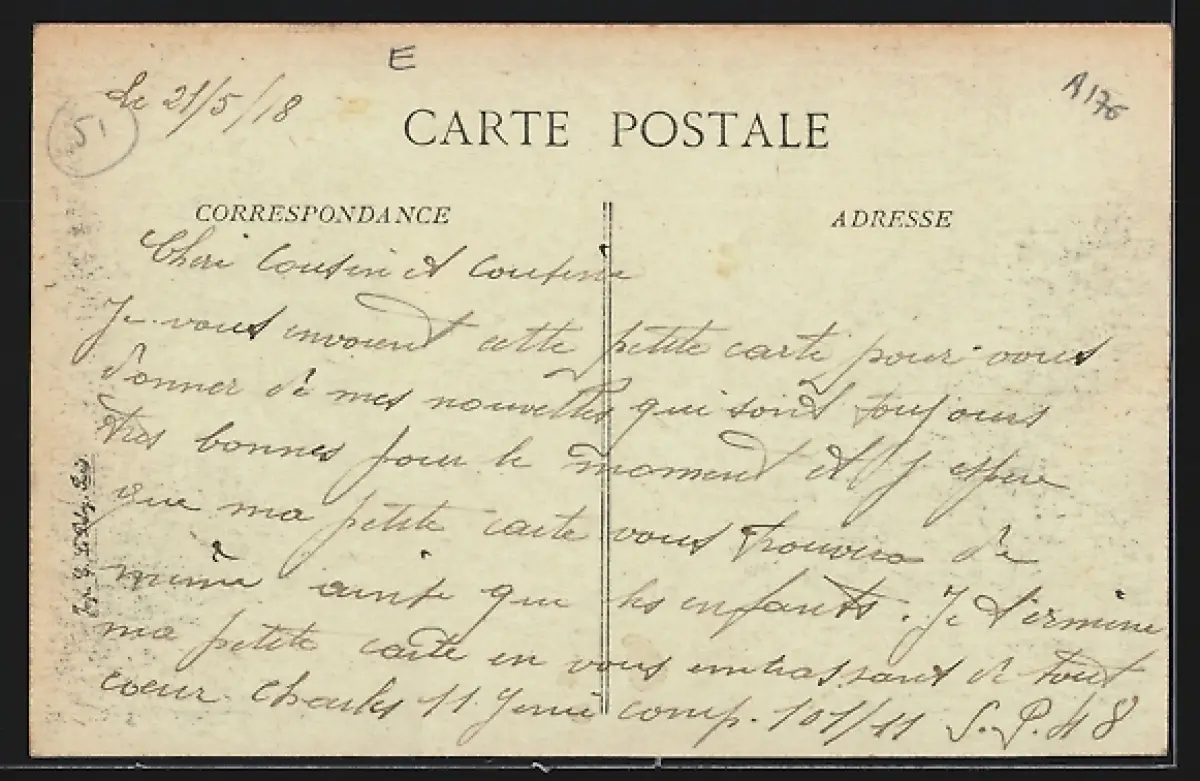 E
Le 21/5/18
A176
51
CARTE POSTALE
CORRESPONDANCE
ADRESSE
Cheri Cousin et Cousine
Je vous envoient cette petite carte pour vous
donner de mes nouvelles qui sont toujours
tres bonnes pour le moment et j espere
que ma petite carte vous trouvera de
même ainsi que les enfants. Je termine
ma petite carte en vous embrassant de tout
coeur Charles 11 Genie comp. 101/11 S.P. 48